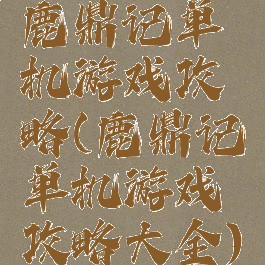 鹿鼎记单
机游戏攻
略(鹿鼎记
单机游戏
攻略大全)